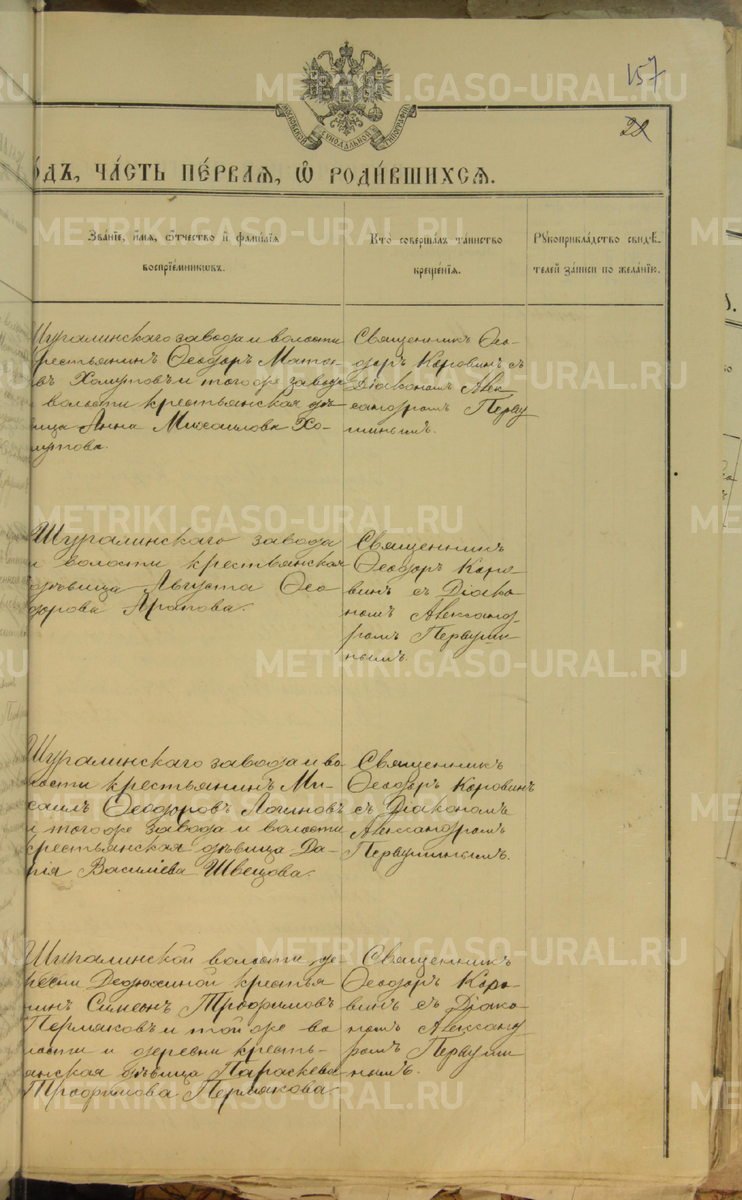 157
22
МОСКОВСКОЙ СѴНОДАЛЬНОЙ ТИПОГРАФІИ
ѻдъ, ча́сть пе́рваѧ, ѡ҆ роди́вшихсѧ.
Зва́нїе, и҆́мѧ, ѻ҆́тчество и҆ фами́лїѧ
воспрїе́мникωвъ.
Кто̀ соверша́лъ та́инство
креще́нїѧ.
Рꙋкоприкла́дство свидѣ́-
телей за́писи по жела́нїю.
Шуралинскаго завода и волости
крестьянинъ Ѳеодоръ Матѳе-
въ Хомутовъ и того же завода
и волости крестьянская дѣ-
вица Анна Михаилова Хо-
мутова.
Священникъ Ѳео-
доръ Коровинъ съ
Діакономъ Алек-
сандромъ Перву
шинымъ.
Шуралинскаго завода
и волости крестьянская
дѣвица Августа Ѳео
дорова Арапова.
Священникъ
Ѳеодоръ Коро-
винъ съ Діако-
номъ Александ-
ромъ Первуши-
нымъ.
Шуралинскаго завода и во-
лости крестьянинъ Ми-
хаилъ Ѳеодоровъ Логиновъ
и того же завода и волости
крестьянская дѣвица Да-
рія Василіева Швецова.
Священникъ
Ѳеодоръ Коровинъ
съ Діакономъ
Александромъ
Первушинымъ.
Шуралинской волости, де-
ревни Дедюхиной крестья
нинъ Симеонъ Трофимовъ
Пермяковъ и той же во-
лости и деревни кресть-
янская дѣвица Параскева
Трофимова Пермякова.
Священникъ
Ѳеодоръ Коро-
винъ съ Діако-
номъ Александ
ромъ Первуши
нымъ.
METRIKI.GASO-URAL.RU